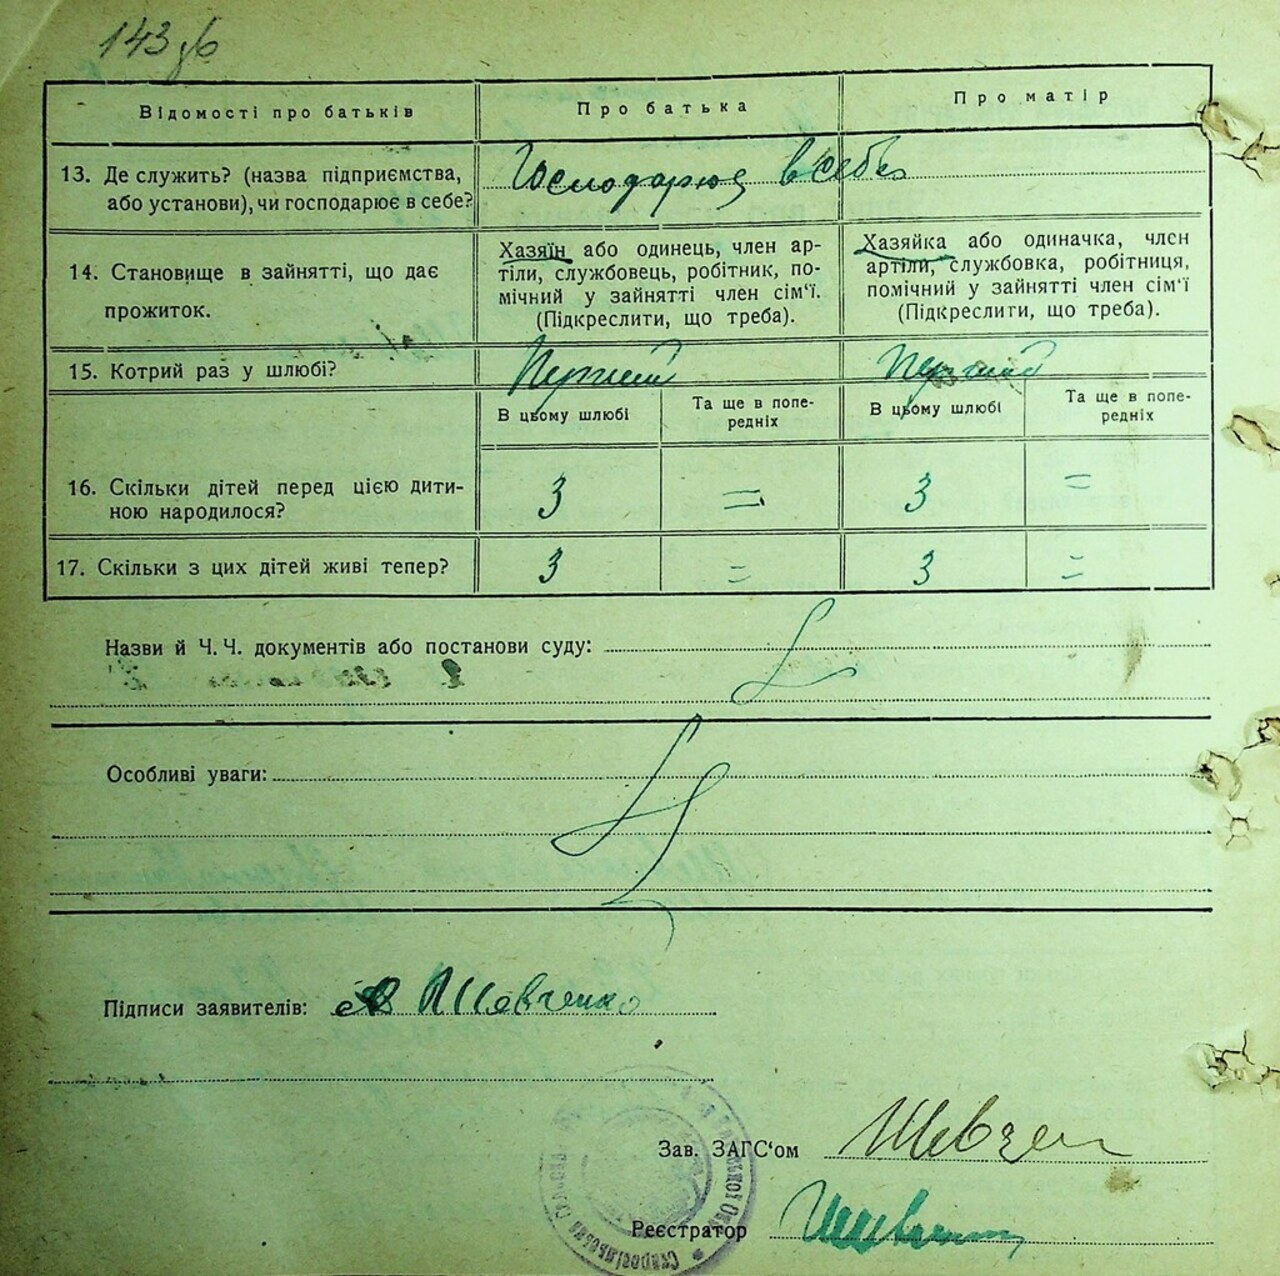 143 зв
Відомості про батьків
Про батька
Про матір
13. Де служить? (назва підприємства, або установи), чи господарює в себе?
Господарює в себе
14. Становище в зайнятті, що дає прожиток.
Хазяїн або одинець, член ар-
тіли, службовець, робітник, по-
мічний у зайнятті член сім'ї.
(Підкреслити, що треба).
Хазяйка або одиначка, член
артіли, службовка, робітниця,
помічний у зайнятті член сім'ї
(Підкреслити, що треба).
15. Котрий раз у шлюбі?
Перший
Перший
В цьому шлюбі
Та ще в попе-
редніх
В цьому шлюбі
Та ще в попе-
редніх
16. Скільки дітей перед цією дити-
ною народилося?
3 = 3 =
17. Скільки з цих дітей живі тепер?
3 = 3 =
Назви й Ч. Ч. документів або постанови суду:
Особливі уваги:
Підписи заявителів: Шевченко
Зав. ЗАГС'ом
Реєстратор